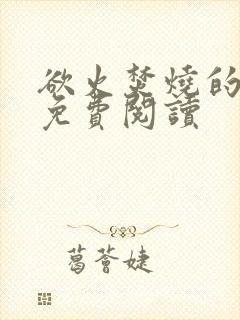 欲火焚燒的
免費閱讀
葛薈婕